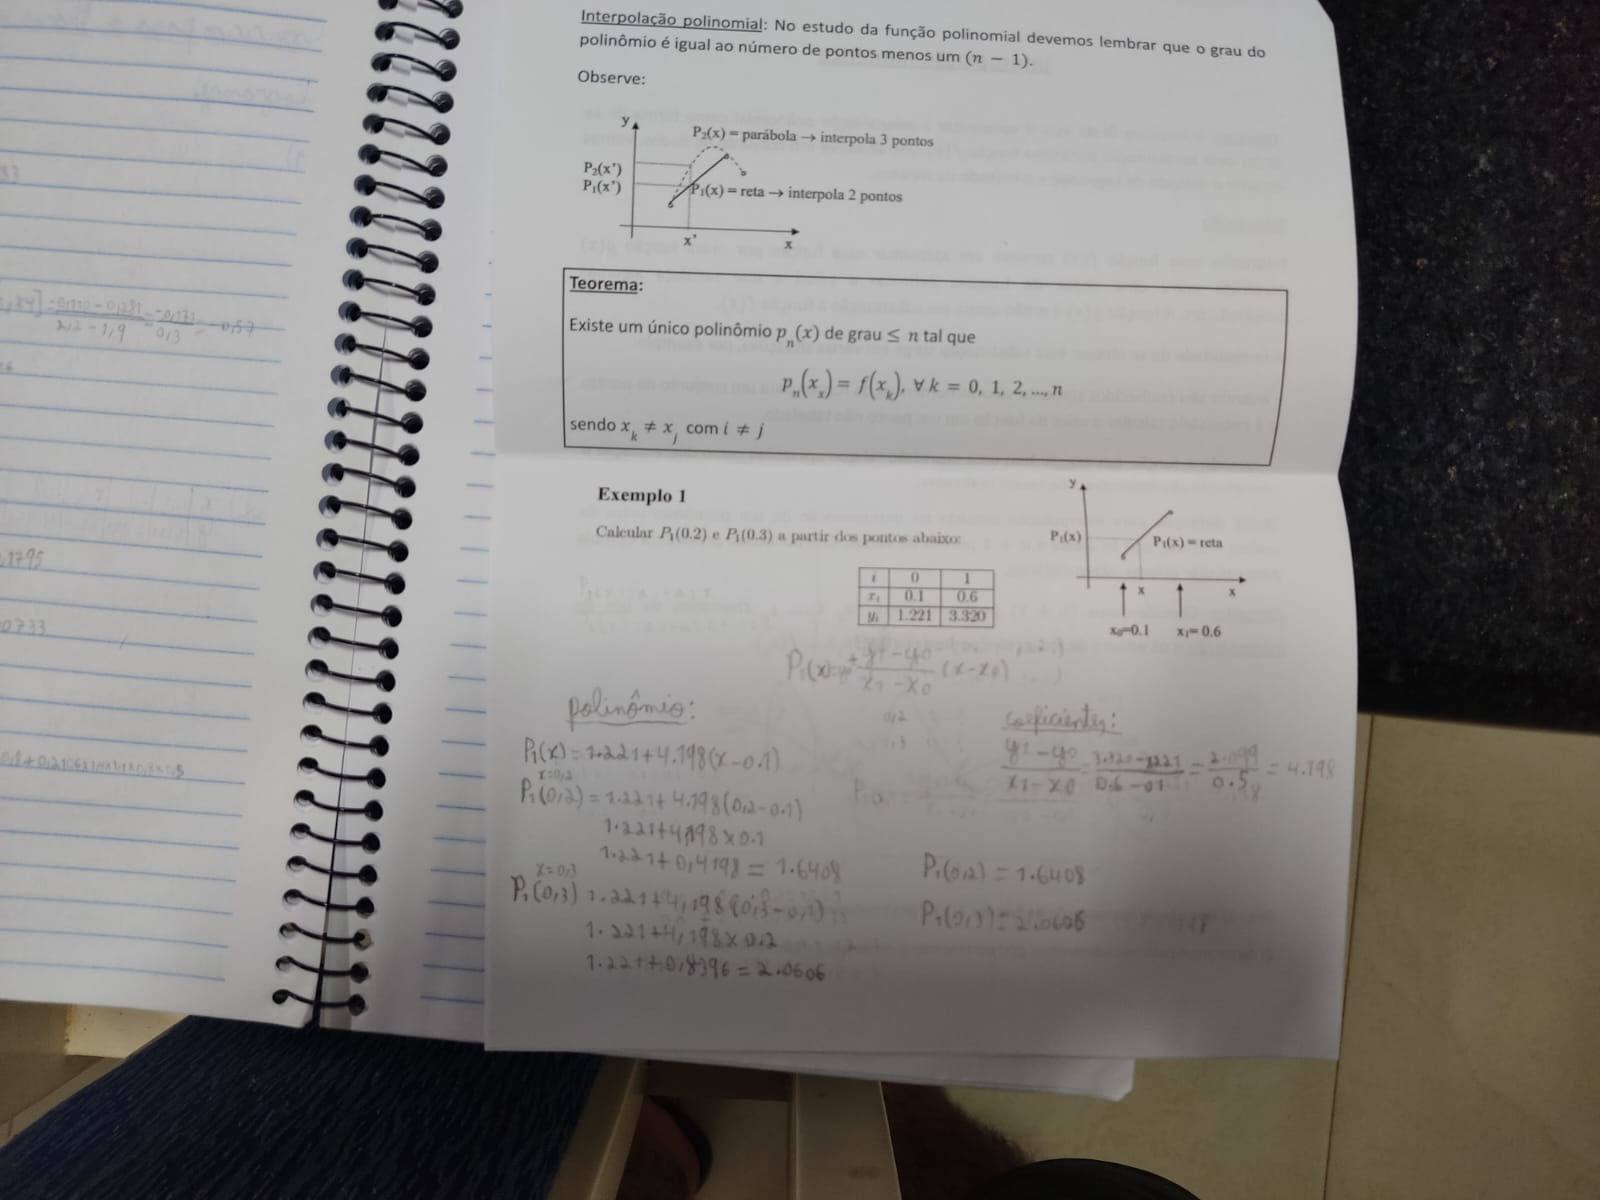 Interpolação polinomial: No estudo da função polinomial devemos lembrar que o grau do
polinômio é igual ao número de pontos menos um (n − 1).
Observe:
y
P₂(x) = parábola → interpola 3 pontos
P₂(x')
P₁(x')
P₁(x) = reta → interpola 2 pontos
x'
x
Teorema:
Existe um único polinômio pₙ(x) de grau ≤ n tal que
pₙ(xₓ) = f(xₖ), ∀ k = 0, 1, 2, ..., n
sendo xₖ ≠ xⱼ com i ≠ j
Exemplo 1
Calcular P₁(0.2) e P₁(0.3) a partir dos pontos abaixo:
i 0 1
xᵢ 0.1 0.6
yᵢ 1.221 3.320
y
P₁(x)
P₁(x) = reta
x
x
x₀=0.1 x₁= 0.6
P₁(x)=y0+ y1-y0 / x1-x0 (x-x0)
polinômio:
P₁(x)=1.221+4.198(x-0.1)
x=0,2
P₁(0,2)=1.221+4.198(0,2-0.1)
1.221+4,198x0.1
1.221+0,4198=1.6408
x=0,3
P₁(0,3) 1.221+4,198(0,3-0,1)
1.221+4,198x0,2
1.221+0,8396=2.0606
0,2
coeficientes:
y1-y0 / x1-x0 = 3.320-1.221 / 0.6-01 = 2.099 / 0.5 = 4.198
P₁(0,2)=1.6408
P₁(0,3)=2.0606
x4] = -0,57
2,2-1,9
0,3
1795
0733